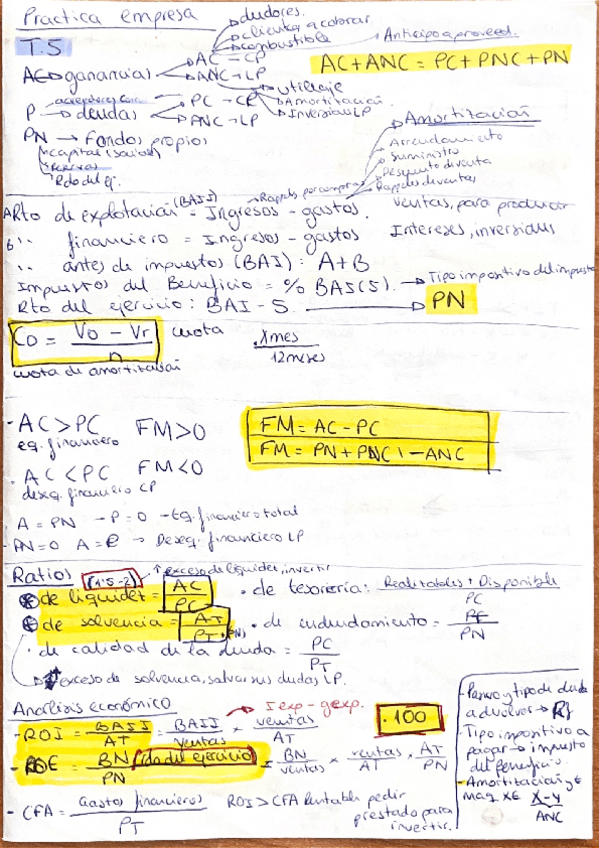 Practica empresa
T.5
dudores.
clientes a cobrar
combustible
Anticipo a proveed.
AC + ANC = PC + PNC + PN
A → ganancias
AC → CP
ANC → LP
utillaje
Amortización
Inversión LP
P → deudas
PC → CP
ANC → LP
PN → Fondos propios
capital (socios)
reservas
Rdo del ej.
Amortización
Arrendamiento
Suministro
Descuento de venta
Rappels de ventas
Rappels por compras
A Rto de explotación (BAII) = Ingresos - gastos. ventas, para producir
B " financiero = Ingresos - gastos Intereses, inversiones
" antes de impuestos (BAI): A + B
Impuestos del Beneficio = % BAI(S). → Tipo impositivo del impuesto
Rto del ejercicio: BAI - S. → PN
Co = Vo - Vr / n cuota
X mes / 12 meses
cuota de amortización
- AC > PC FM > 0
eq. financiero
FM = AC - PC
FM = PN + PNC - ANC
. AC < PC FM < 0
deseq. financiero CP
. A = PN - P = 0 - Eq. financiero total
- PN = 0 A = P → Deseq. financiero LP
Ratios (1'5 - 2) ↑ exceso de liquidez, invertir
de liquidez = AC / PC
· de tesorería: Realizables + Disponible / PC
de solvencia = AT / PT
· de endeudamiento = PT / PN
· de calidad de la deuda = PC / PT
exceso de solvencia, salvar sus deudas LP.
Analisis económico
I exp - g exp.
- ROI = BAII / AT = BAII / ventas × ventas / AT
. 100
- ROE = BN (rdo del ejercicio) / PN = BN / ventas × ventas / AT × AT / PN
- CFA = Gastos financieros / PT ROI > CFA Rentable pedir
prestado para
invertir.
- Pasivo y tipo de deuda
a devolver →
- Tipo impositivo a
pagar → impuesto
del beneficio.
- Amortización
maq. X€ X - y / ANC